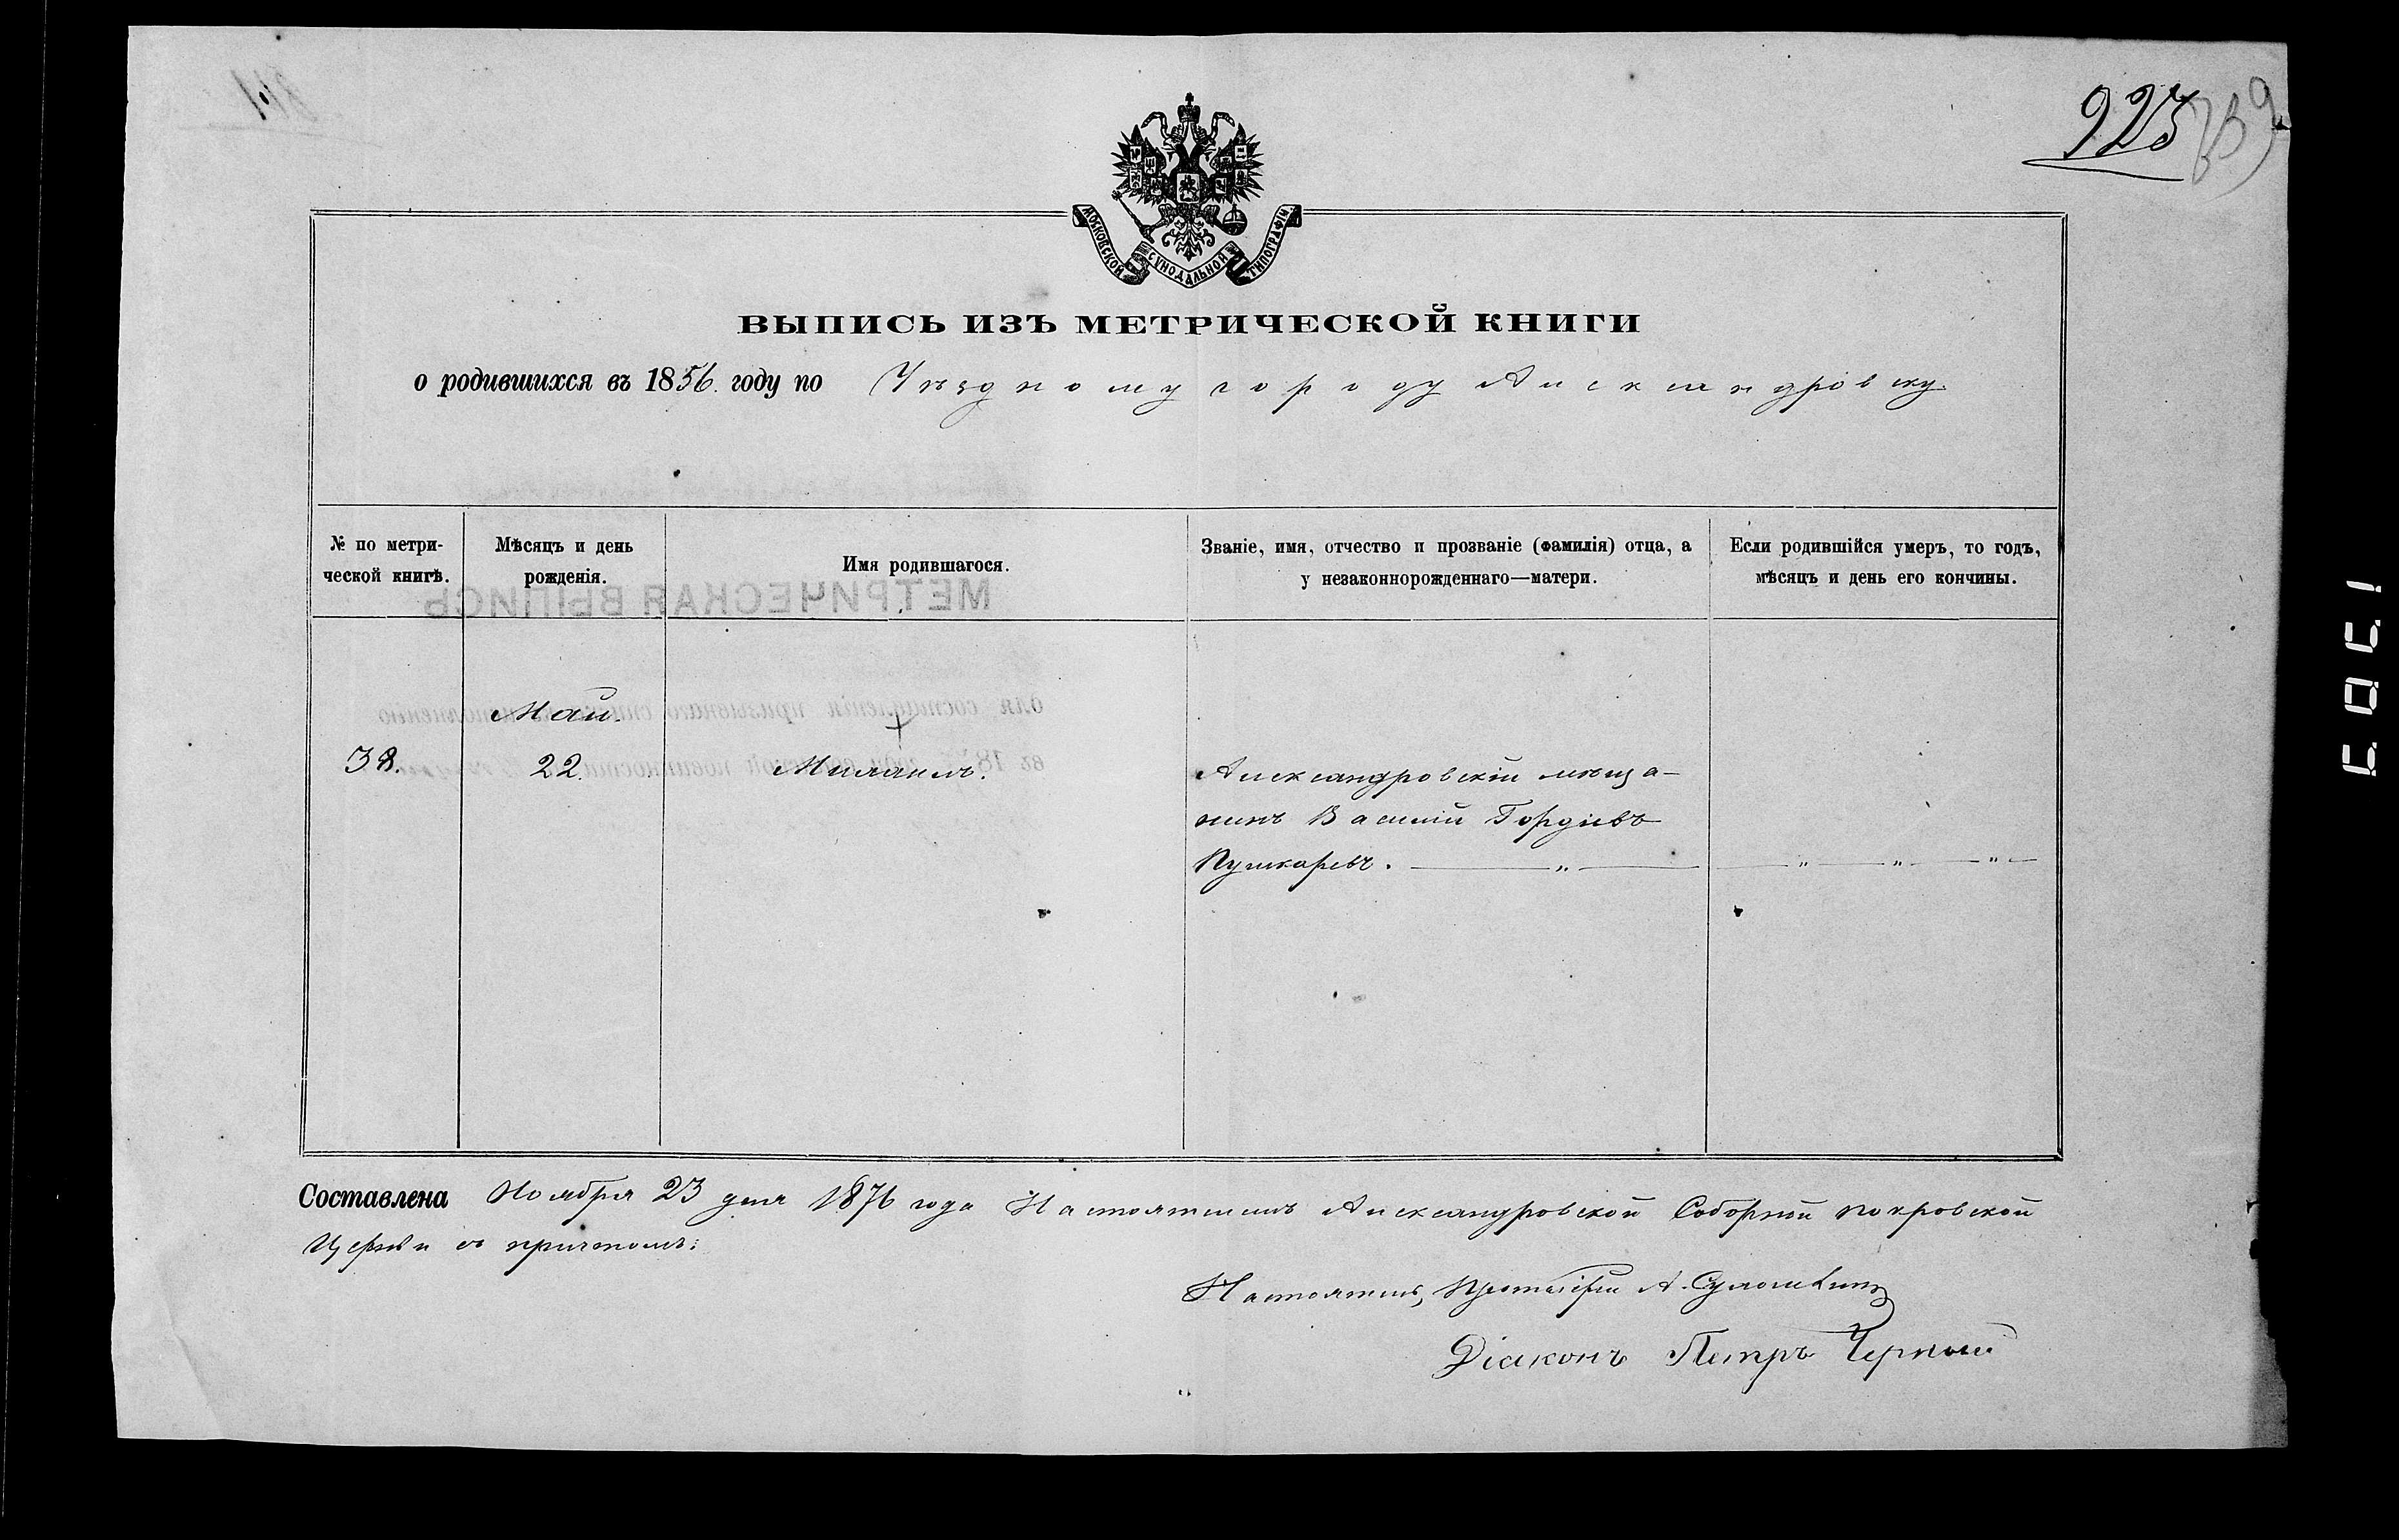 925
МОСКОВСКОЙ СѴНОДАЛЬНОЙ ТИПОГРАФІИ.
ВЫПИСЬ ИЗЪ МЕТРИЧЕСКОЙ КНИГИ
о родившихся въ 1856. году по Уѣздному городу Александровску.
№ по метри-
ческой книгѣ.
Мѣсяцъ и день
рожденія.
Имя родившагося.
Званіе, имя, отчество и прозваніе (фамилія) отца, а
у незаконнорожденнаго—матери.
Если родившійся умеръ, то годъ,
мѣсяцъ и день его кончины.
Май.
38. 22. Михаилъ. Александровскій мѣща-
нинъ Василій Гордіевъ
Пушкаревъ. — „ — — „ — „ — „ —
Составлена Ноября 23 дня 1876 года Настоятелемъ Александровской Соборной Покровской
Церкви съ причтомъ:
Настоятель, Протоіерей А.
Діаконъ Петръ Черный
МЕТРИЧЕСКАЯ ВЫПИСЬ
для составленія призывнаго списка